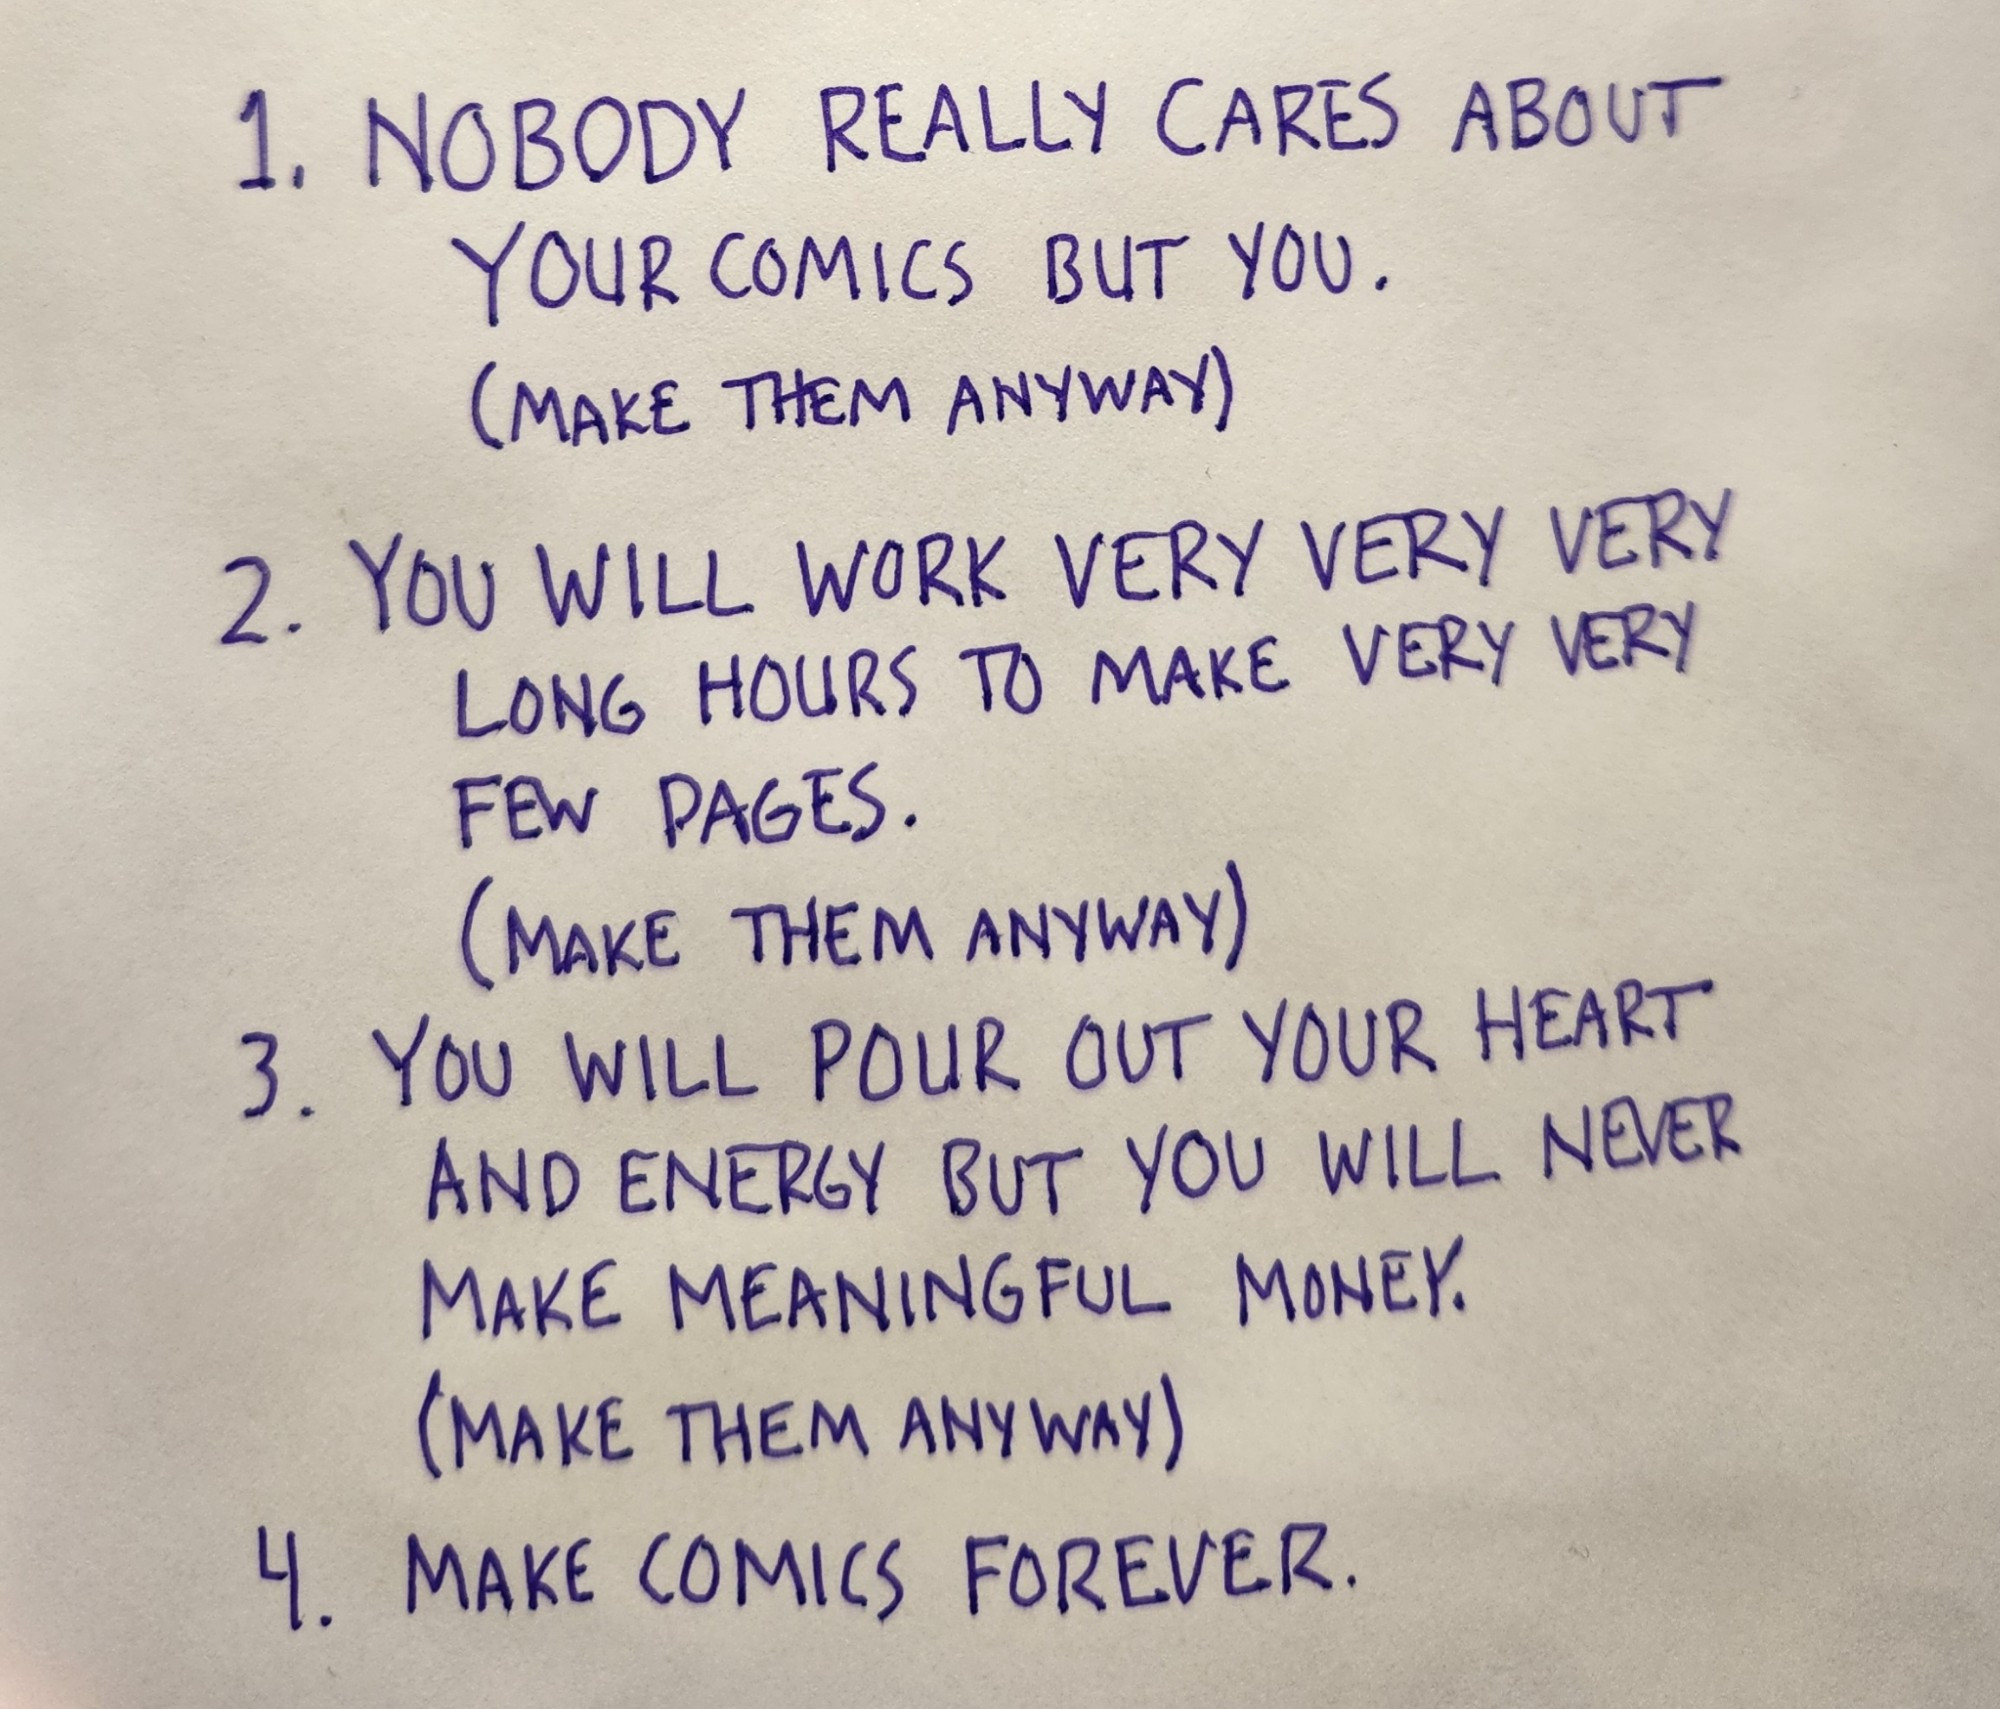 1. NOBODY REALLY CARES ABOUT
YOUR COMICS BUT YOU.
(MAKE THEM ANYWAY)
2. YOU WILL WORK VERY VERY VERY
LONG HOURS TO MAKE VERY VERY
FEW PAGES.
(MAKE THEM ANYWAY)
3. YOU WILL POUR OUT YOUR HEART
AND ENERGY BUT YOU WILL NEVER
MAKE MEANINGFUL MONEY.
(MAKE THEM ANYWAY)
4. MAKE COMICS FOREVER.